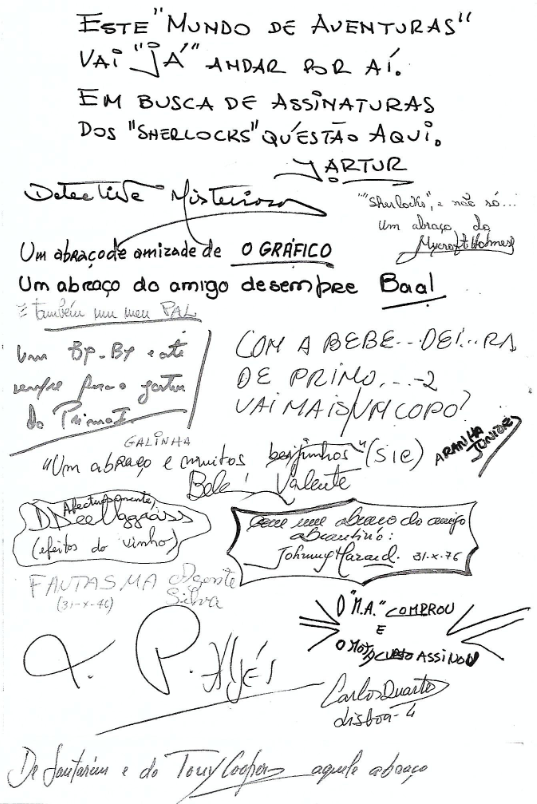 ESTE "MUNDO DE AVENTURAS"
VAI "JÁ" ANDAR POR AÍ.
EM BUSCA DE ASSINATURAS
DOS "SHERLOCKS" QU'ESTÃO AQUI.
JARTUR
Detective Misterioso
"Sherlocks", e não só...
um abraço do
Mycroft Holmes
Um abraço de amizade de O GRÁFICO
Um abraço do amigo de sempre Baal
E também um meu PAL
Um BP-BY e até
sempre para o
do
COM A BEBE...DEI...RA
DE PRIMO...-2
VAI MAIS UM COPO?
ARANHA
JUNIOR
GALINHA
"Um abraço e muitos beijinhos" (sic)
Belé Valente
Afectuosamente,
(efeitos do vinho)
Com um abraço do amigo
abrantino:
Johnny Hazard. 31-X-76
FANTASMA Agente
(31-X-76) Silva
O "M.A." COMPROU
E
O ASSINOU
Carlos Duarte
Lisboa-4
P. Algés
De Santarém e do Tony Cooper aquele abraço